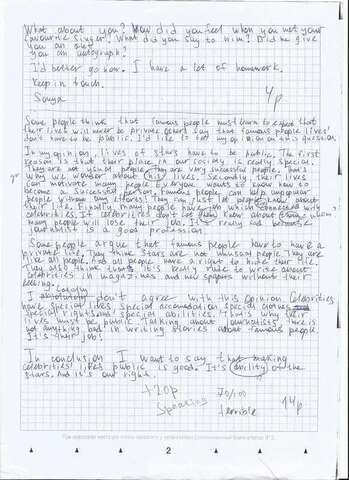 What about you? How did you feel when you met your
favourite singer? What did you say to him? Did he give
you an
you an autograph?
I'd better go now. I have a lot of homework.
Keep in touch.
Sonya
4p
Some people think that famous people must learn to expect that
their lives will never be private. Others say that famous people lives
don't have to be public. I'd like to tell my opinion on this question.
In my opinion, lives of stars have to be public. The first
reason is that their place in our society is really special.
They are not usual people, they are very successful people. That's
why we wonder about lives. Secondly, their lives
can motivate many people. Everyone wants to know how so
become successful person. Famous people can help unpopular
people without any efforts. They can just let people know about
their life. Finally, many people have job which connected with
celebrities. If celebrities don't let know about them, when
many people will lose their job. It's really bad because
journalist is a good profession.
Some people argue that famous people have to have a
private life. They think stars are not unusual people. They are
like all people, and all people have a right to hide their life.
They also think that it's really rude to write about
celebrities in magazines and newspapers without their
feeling.
I totally don't agree with this opinion. Celebrities
have special lives, special accomodation, special clothes,
special rights and special abilities. That's why their
lives must be public. Talking about journalists, there is
not anything bad in writing stories about famous people.
It's their job!
In conclusion I want to say that making
celebrities' lives public is good. It's ability of the
stars, and it's our right.
+20p
Speaking
70/100
terrible
14p
2